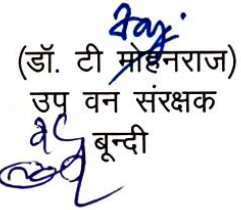 (डॉ. टी मोहनराज)
उप वन संरक्षक
बून्दी